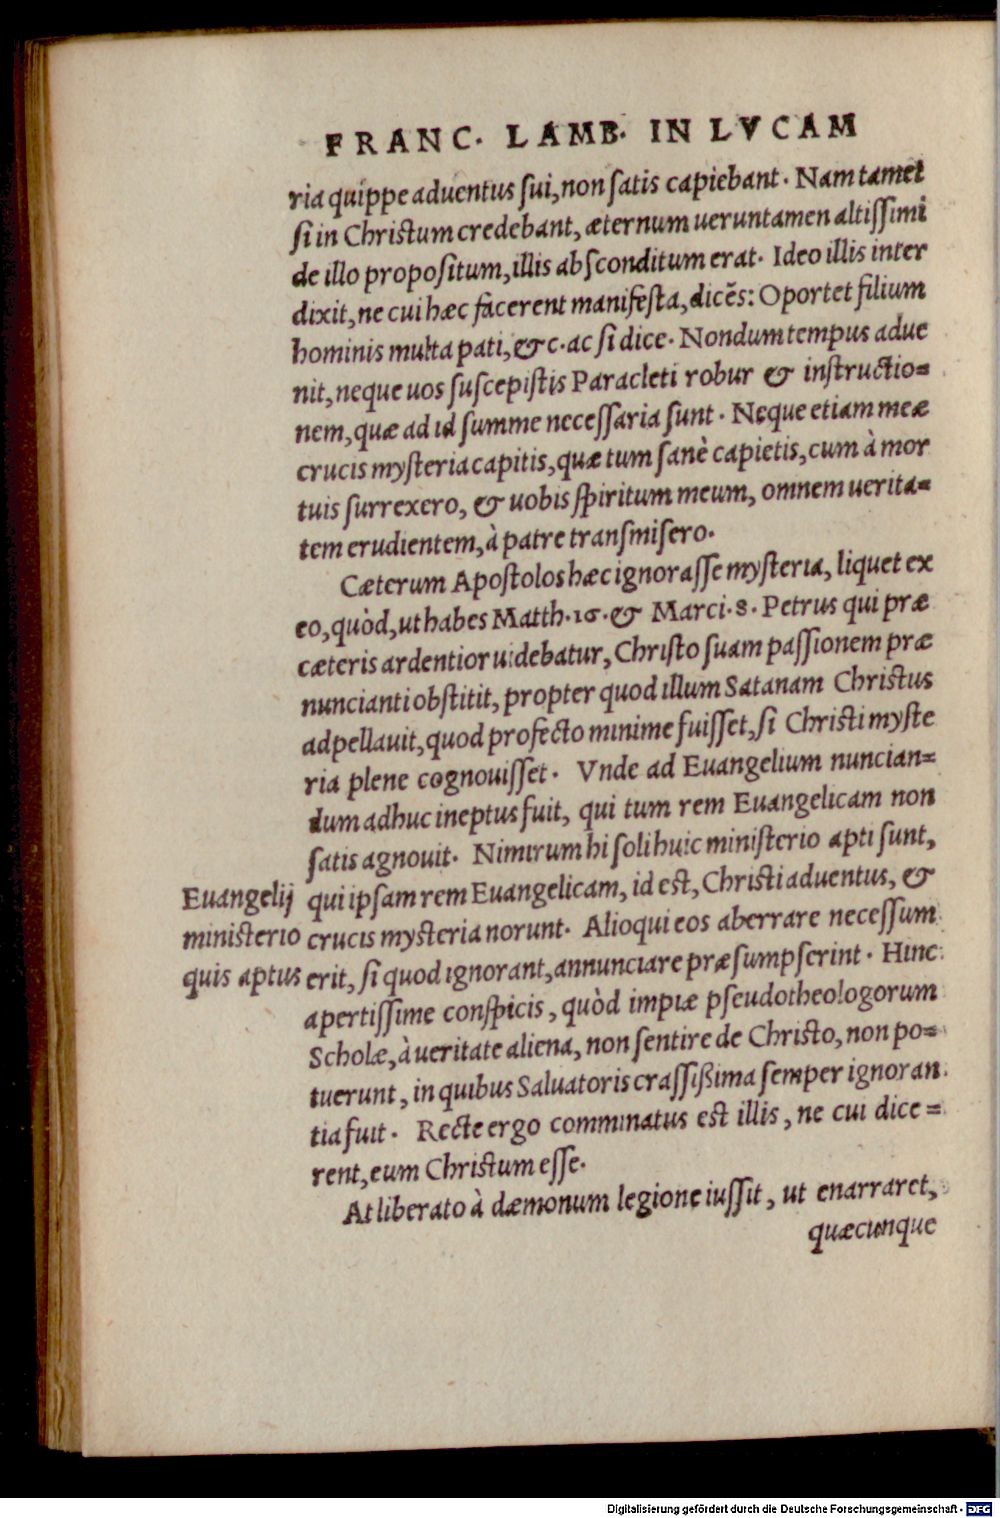 FRANC. LAMB. IN LVCAM
ria quippe aduentus sui, non satis capiebant. Nam tamet
si in Christum credebant, æternum ueruntamen altissimi
de illo propositum, illis absconditum erat. Ideo illis inter
dixit, ne cui hæc facerent manifesta, dicẽs: Oportet filium
hominis multa pati, &c. ac si dice. Nondum tempus adue
nit, neque uos suscepistis Paracleti robur & instructio=
nem, quæ ad id summe necessaria sunt. Neque etiam meæ
crucis mysteria capitis, quæ tum sanè capietis, cum à mor
tuis surrexero, & uobis spiritum meum, omnem uerita=
tem erudientem, à patre transmisero.
Cæterum Apostolos hæc ignorasse mysteria, liquet ex
eo, quòd, ut habes Matth. 16. & Marci. 8. Petrus qui præ
cæteris ardentior uidebatur, Christo suam passionem præ
nuncianti obstitit, propter quod illum Satanam Christus
adpellauit, quod profecto minime fuisset, si Christi myste
ria plene cognouisset. Vnde ad Euangelium nuncian=
dum adhuc ineptus fuit, qui tum rem Euangelicam non
satis agnouit. Nimirum hi soli huic ministerio apti sunt,
Euangelij qui ipsam rem Euangelicam, id est, Christi aduentus, &
ministerio crucis mysteria norunt. Alioqui eos aberrare necessum
quis aptus erit, si quod ignorant, annunciare præsumpserint. Hinc
apertissime conspicis, quòd impiæ pseudotheologorum
Scholæ, à ueritate aliena, non sentire de Christo, non po=
tuerunt, in quibus Saluatoris crassißima semper ignoran
tia fuit. Recte ergo comminatus est illis, ne cui dice=
rent, eum Christum esse.
At liberato à dæmonum legione iussit, ut enarraret,
quæcunque
Digitalisierung gefördert durch die Deutsche Forschungsgemeinschaft - DFG